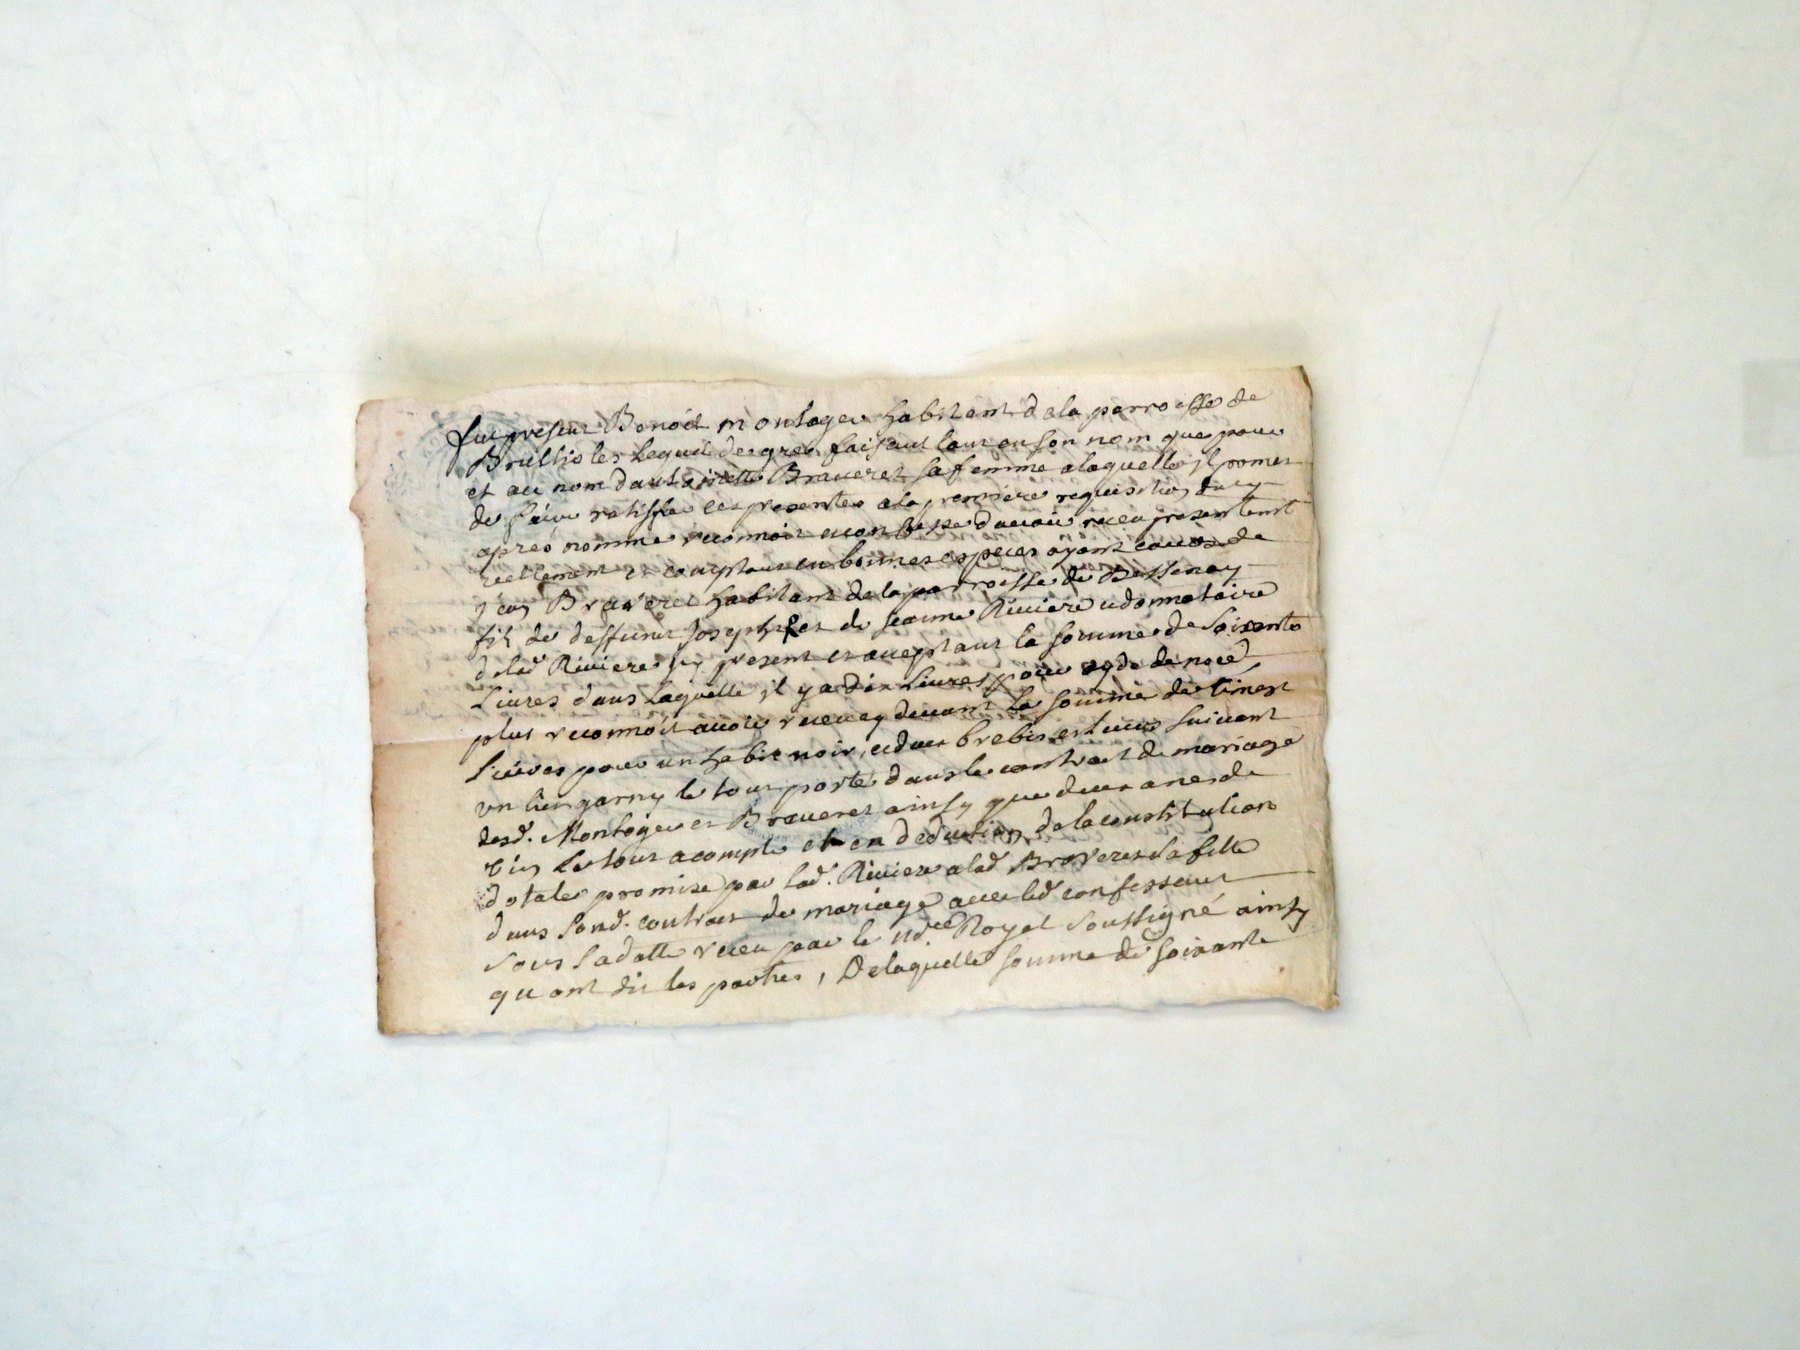 fut present Benoit montager habitant de la parroisse de
Brullioles Lequel de gré faisant tant en son nom que pour
et au nom d'antoinette Braveret sa femme a laquelle il promet
de faire ratiffier ces presentes a la premiere requisition du cy
apres nommé reconnoit et confesse d'avoir receu presentement
reellement et comptant en bonnes especes ayant cours de
Jean Braveret habitant de la parroisse de Bessenay
fils de deffunt Joseph et de jeanne Riviere et donnataire
de lad. Riviere icy present et acceptant la somme de soixante
Livres dans laquelle il y a dix Livres pour de noce
plus reconnoit avoir receu cy devant La somme de vingt
Livres pour un habit noir, et deux brebis et leurs suivant
un lit garny le tout porté dans le contract de mariage
desd. Montager et Braveret ainsy que deux anes de
vin Le tout acompte et en deduction de la constitution
dotale promise par lad. Riviere a lad. Braveret sa fille
dans sond. contrat de mariage avec led. confessant
sous sa datte receu par le nore. Royal soussigné ainsy
qu'ont dit les parties, De laquelle somme de soixante